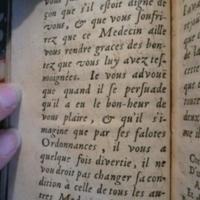 çon que s'il estoit digne de
vous, & que vous souffri-
rez que ce Medecin aille
vous rendre graces des bon-
tez que vous luy avez tes-
moignées. Ie vous advouë
que quand il se persuade
qu'il a eu le bon-heur de
vous plaire, & qu'il s'i-
magine que par ses falotes
Ordonnances, il vous a
quelque fois divertie, il ne
voudroit pas changer sa con-
dition à celle de tous les au-
tres